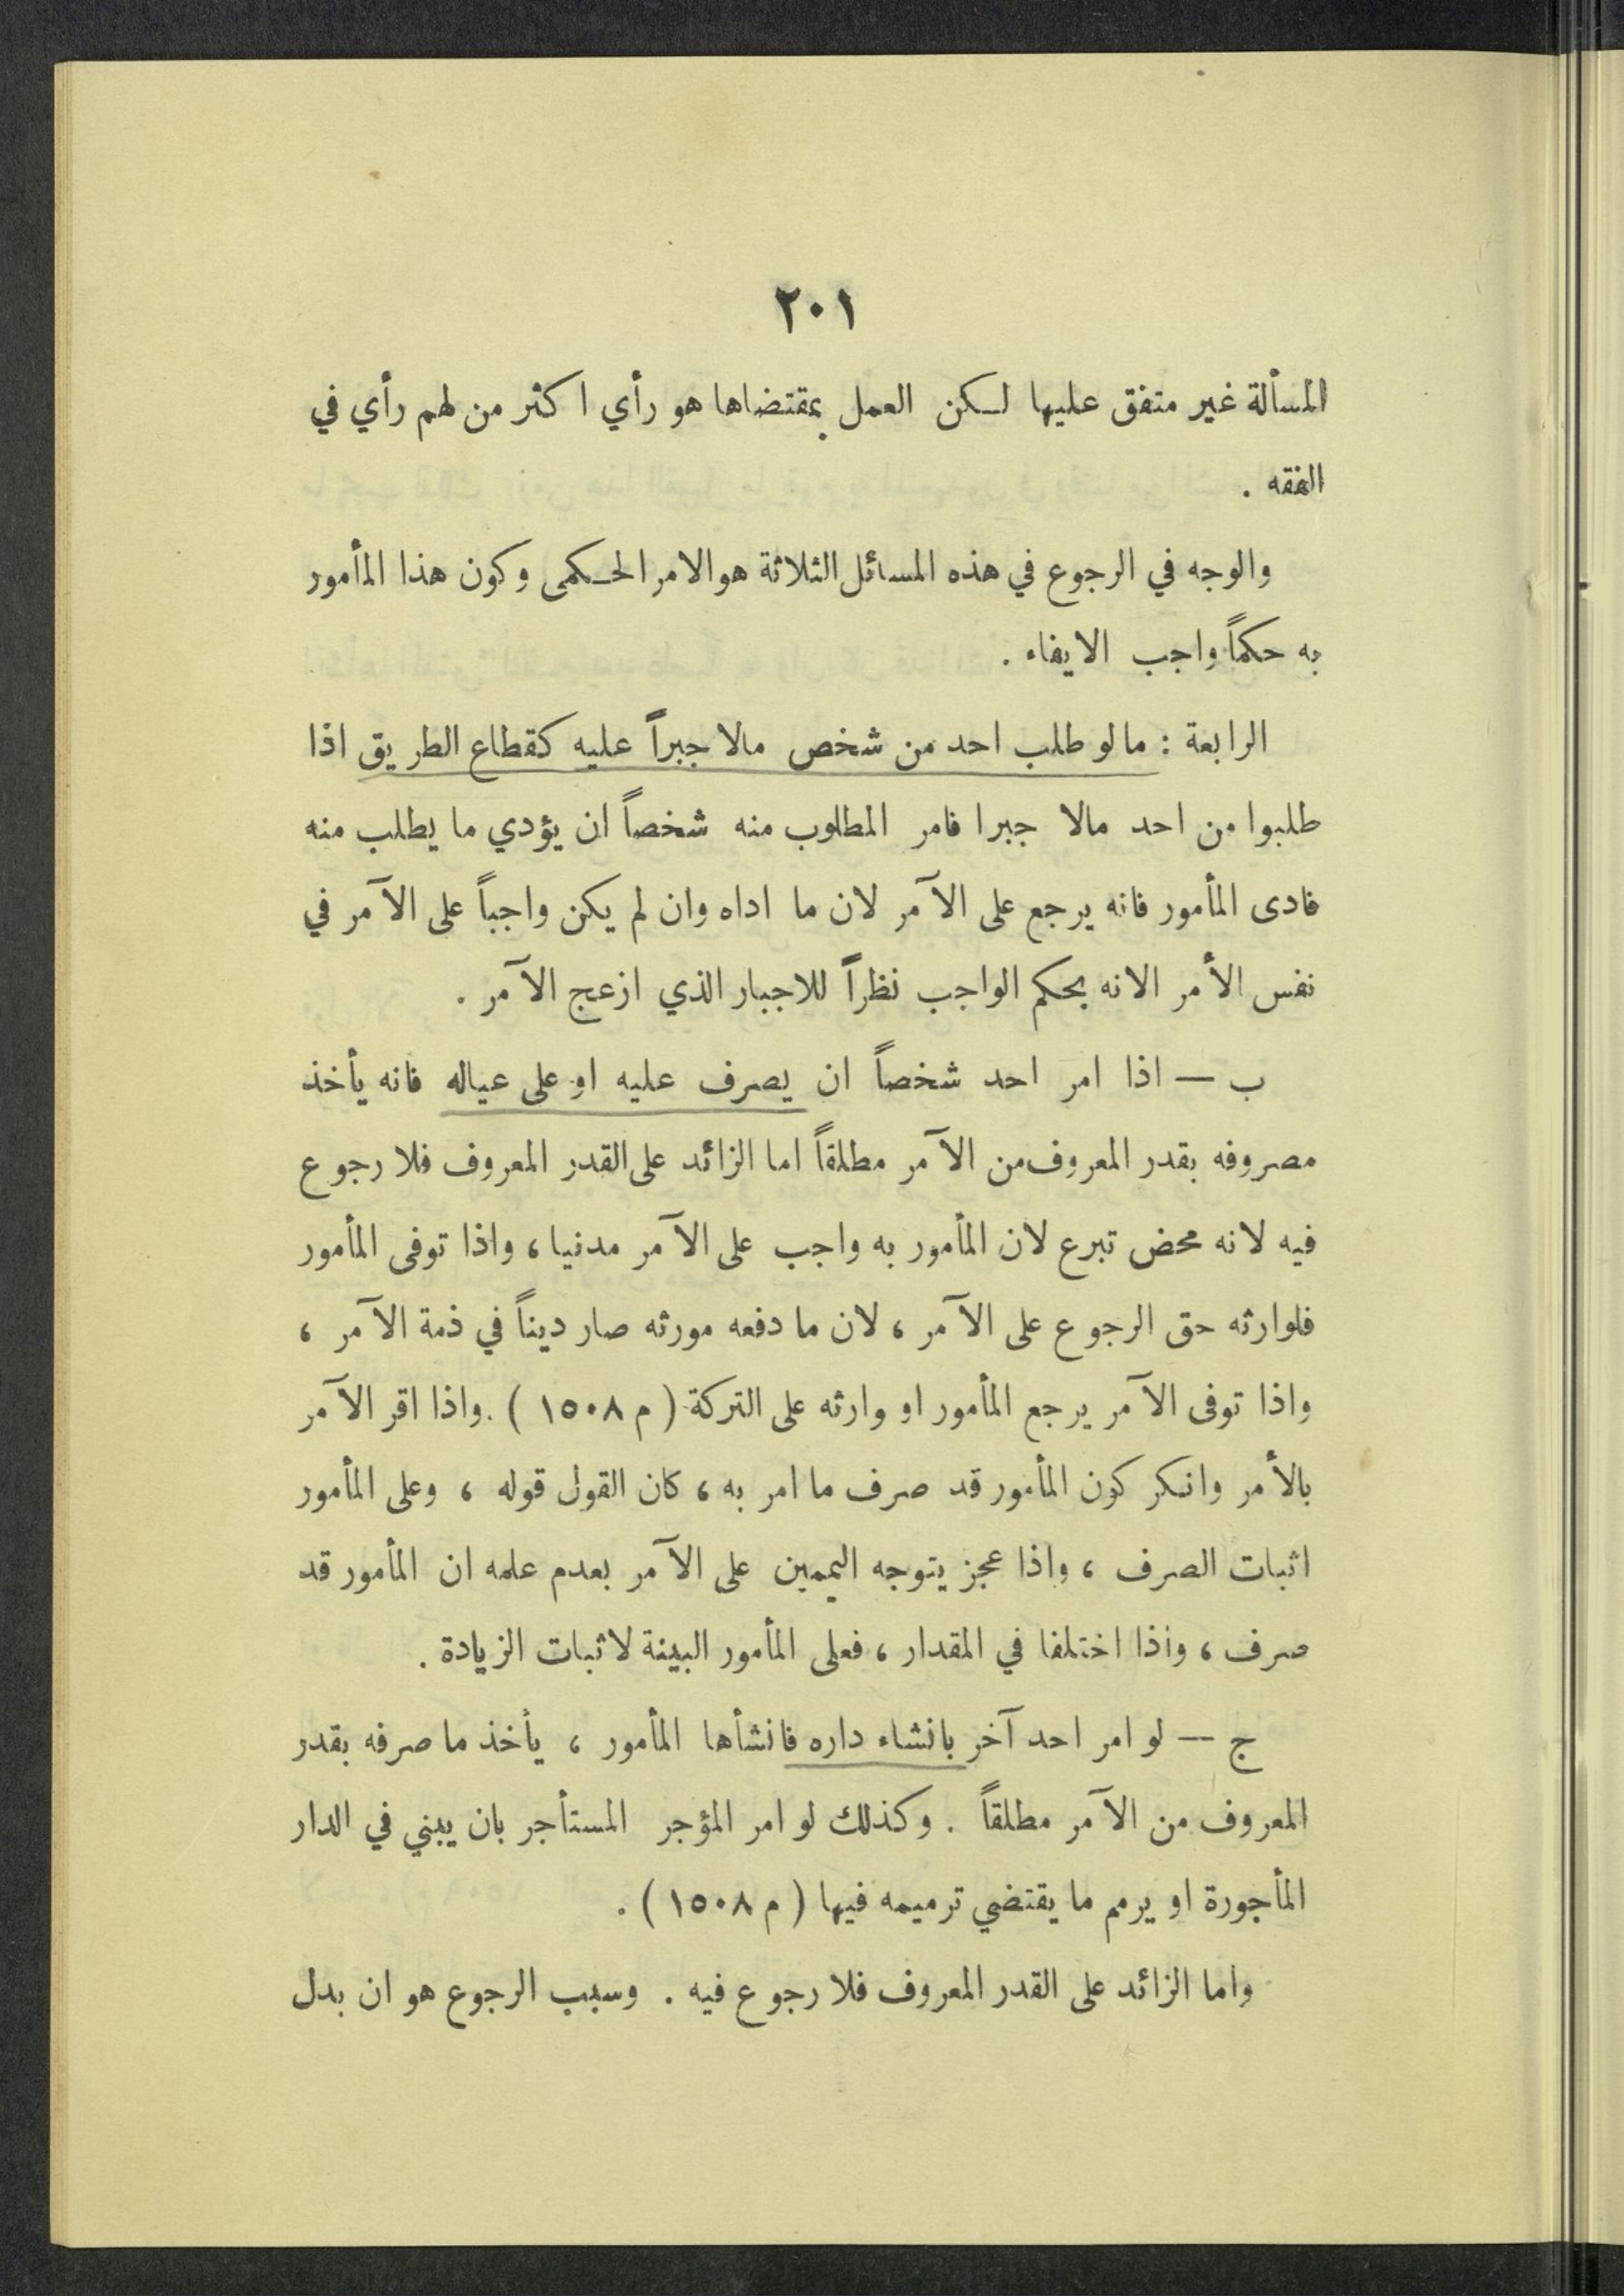 ٢٠١
المسألة غير متفق عليها لكن العمل بمقتضاها هو رأي اكثر من لهم رأي في
الفقه .
والوجه في الرجوع في هذه المسائل الثلاثة هو الامر الحكمى وكون هذا المأمور
به حكماً واجب الايفاء .
الرابعة : مالو طلب احد من شخص مالا جبراً عليه كقطاع الطريق اذا
طلبوا من احد مالا جبرا فامر المطلوب منه شخصاً ان يؤدي ما يطلب منه
فادى المأمور فانه يرجع على الآمر لان ما اداه وان لم يكن واجباً على الآمر في
نفس الأمر الانه بحكم الواجب نظراً للاجبار الذي ازعج الآمر .
ب — اذا امر احد شخصاً ان يصرف عليه او على عياله فانه يأخذ
مصروفه بقدر المعروف من الآمر مطلقاً اما الزائد على القدر المعروف فلا رجوع
فيه لانه محض تبرع لان المأمور به واجب على الآمر مدنيا ، واذا توفى المأمور
فلوارثه حق الرجوع على الآمر ، لان ما دفعه مورثه صار ديناً في ذمة الآمر ،
واذا توفى الآمر يرجع المأمور او وارثه على التركة ( م ١٥٠٨ ) . واذا اقر الآمر
بالأمر وانكر كون المأمور قد صرف ما امر به ، كان القول قوله ، وعلى المأمور
اثبات الصرف ، واذا عجز يتوجه اليمين على الآمر بعدم علمه ان المأمور قد
صرف ، واذا اختلفا في المقدار ، فعلى المأمور البينة لاثبات الزيادة .
ج — لو امر احد آخر بانشاء داره فانشأها المأمور ، يأخذ ما صرفه بقدر
المعروف من الآمر مطلقاً . وكذلك لو امر المؤجر المستأجر بان يبني في الدار
المأجورة او يرمم ما يقتضي ترميمه فيها ( م ١٥٠٨ ) .
واما الزائد على القدر المعروف فلا رجوع فيه . وسبب الرجوع هو ان بدل